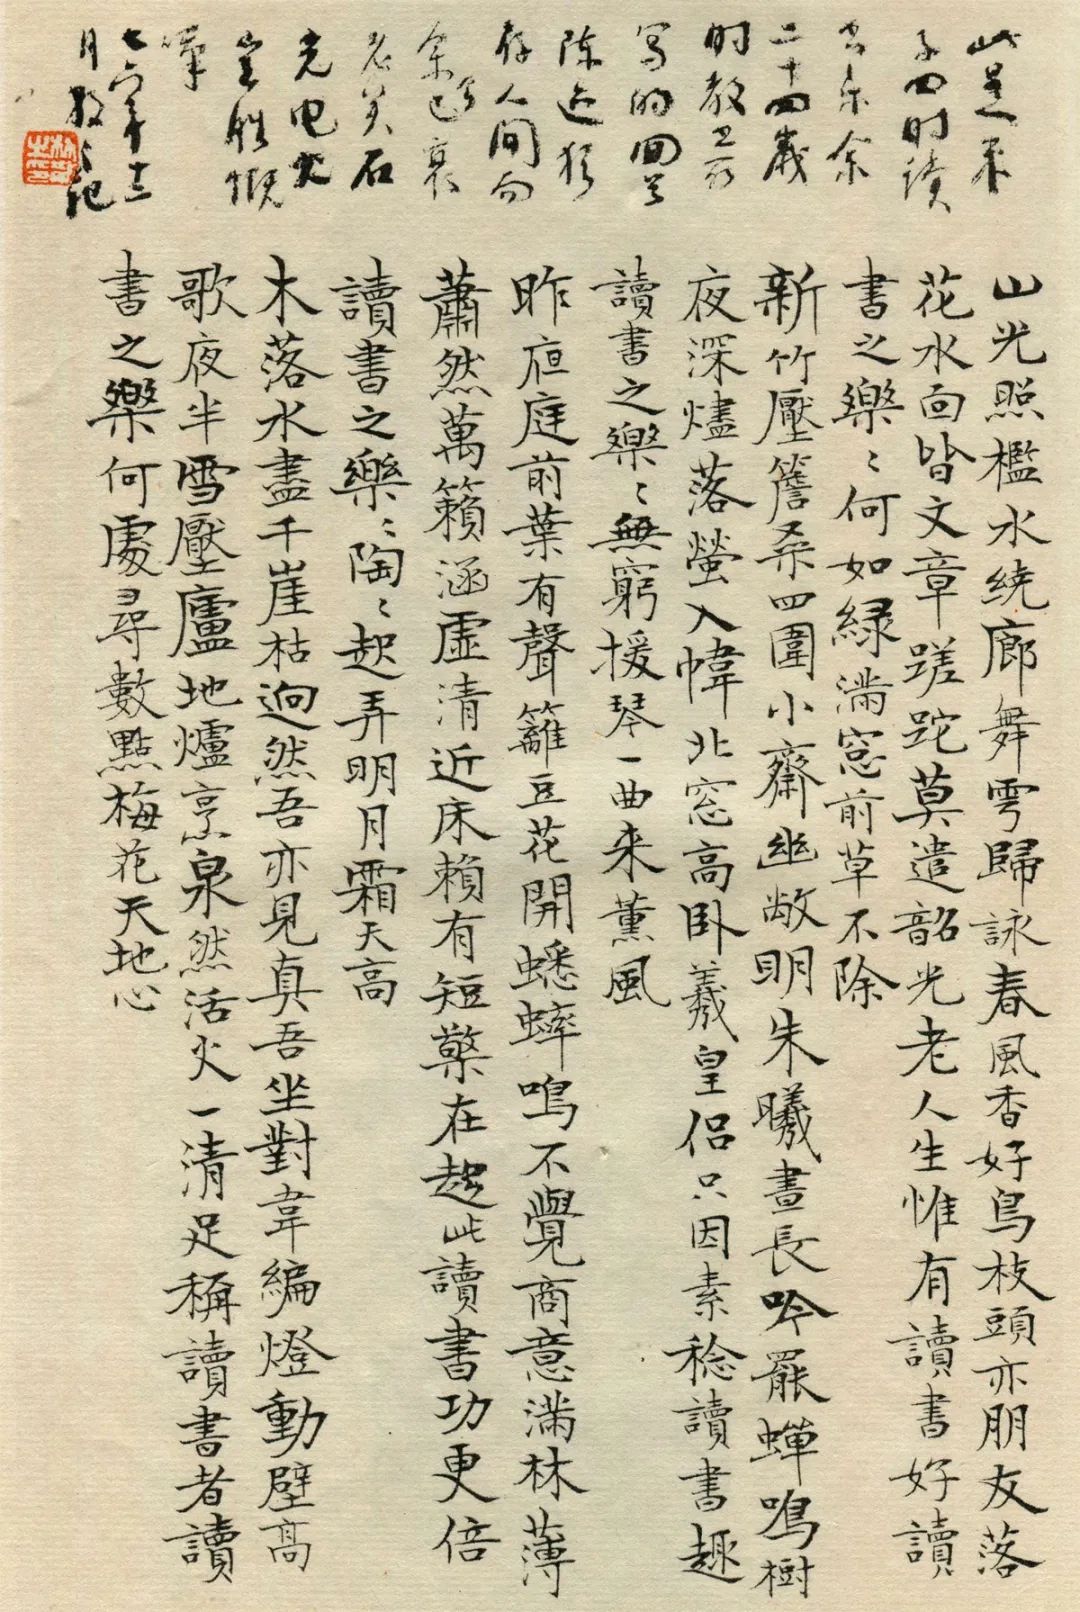 此是朱
子四时读
书乐余
二十四歲
时教
写的
陈迹猶
存人间而
余已衰
老矣石
光电火
岂勝慨
嘆
七六年十二
月散之记
山光照檻水繞廊舞雩歸詠春風香好鳥枝頭亦朋友落
花水面皆文章蹉跎莫遣韶光老人生惟有讀書好讀
書之樂〻何如綠滿窓前草不除
新竹壓簷桑四圍小齋幽敞明朱曦晝長吟罷蟬鳴樹
夜深燼落螢入幃北窓高卧羲皇侶只因素稔讀書趣
讀書之樂〻無窮援琴一曲来薰風
昨夜庭前葉有聲籬豆花開蟋蟀鳴不覺商意滿林薄
蕭然萬籟涵虛清近床賴有短檠在趁此讀書功更倍
讀書之樂〻陶〻起弄明月霜天高
木落水盡千崖枯迥然吾亦見真吾坐對韋編燈動壁高
歌夜半雪壓廬地爐烹泉然活火一清足稱讀書者讀
書之樂何處尋數點梅花天地心